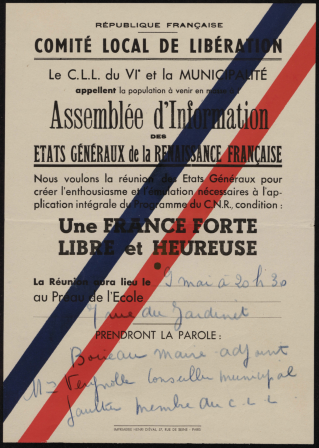 RÉPUBLIQUE FRANÇAISE
COMITÉ LOCAL DE LIBÉRATION
Le C.L.L. du VIe et la MUNICIPALITÉ
appellent la population à venir en masse à l'
Assemblée d'Information
DES
ETATS GÉNÉRAUX de la RENAISSANCE FRANÇAISE
Nous voulons la réunion des Etats Généraux pour
créer l'enthousiasme et l'émulation nécessaires à l'ap-
plication intégrale du Programme du C.N.R., condition :
Une FRANCE FORTE
LIBRE et HEUREUSE
La Réunion aura lieu le 9 mai à 20 h 30
au Préau de l'Ecole
rue du Jardinet
PRENDRONT LA PAROLE :
maire-adjoint
Conseiller municipal
membre du C.L.L